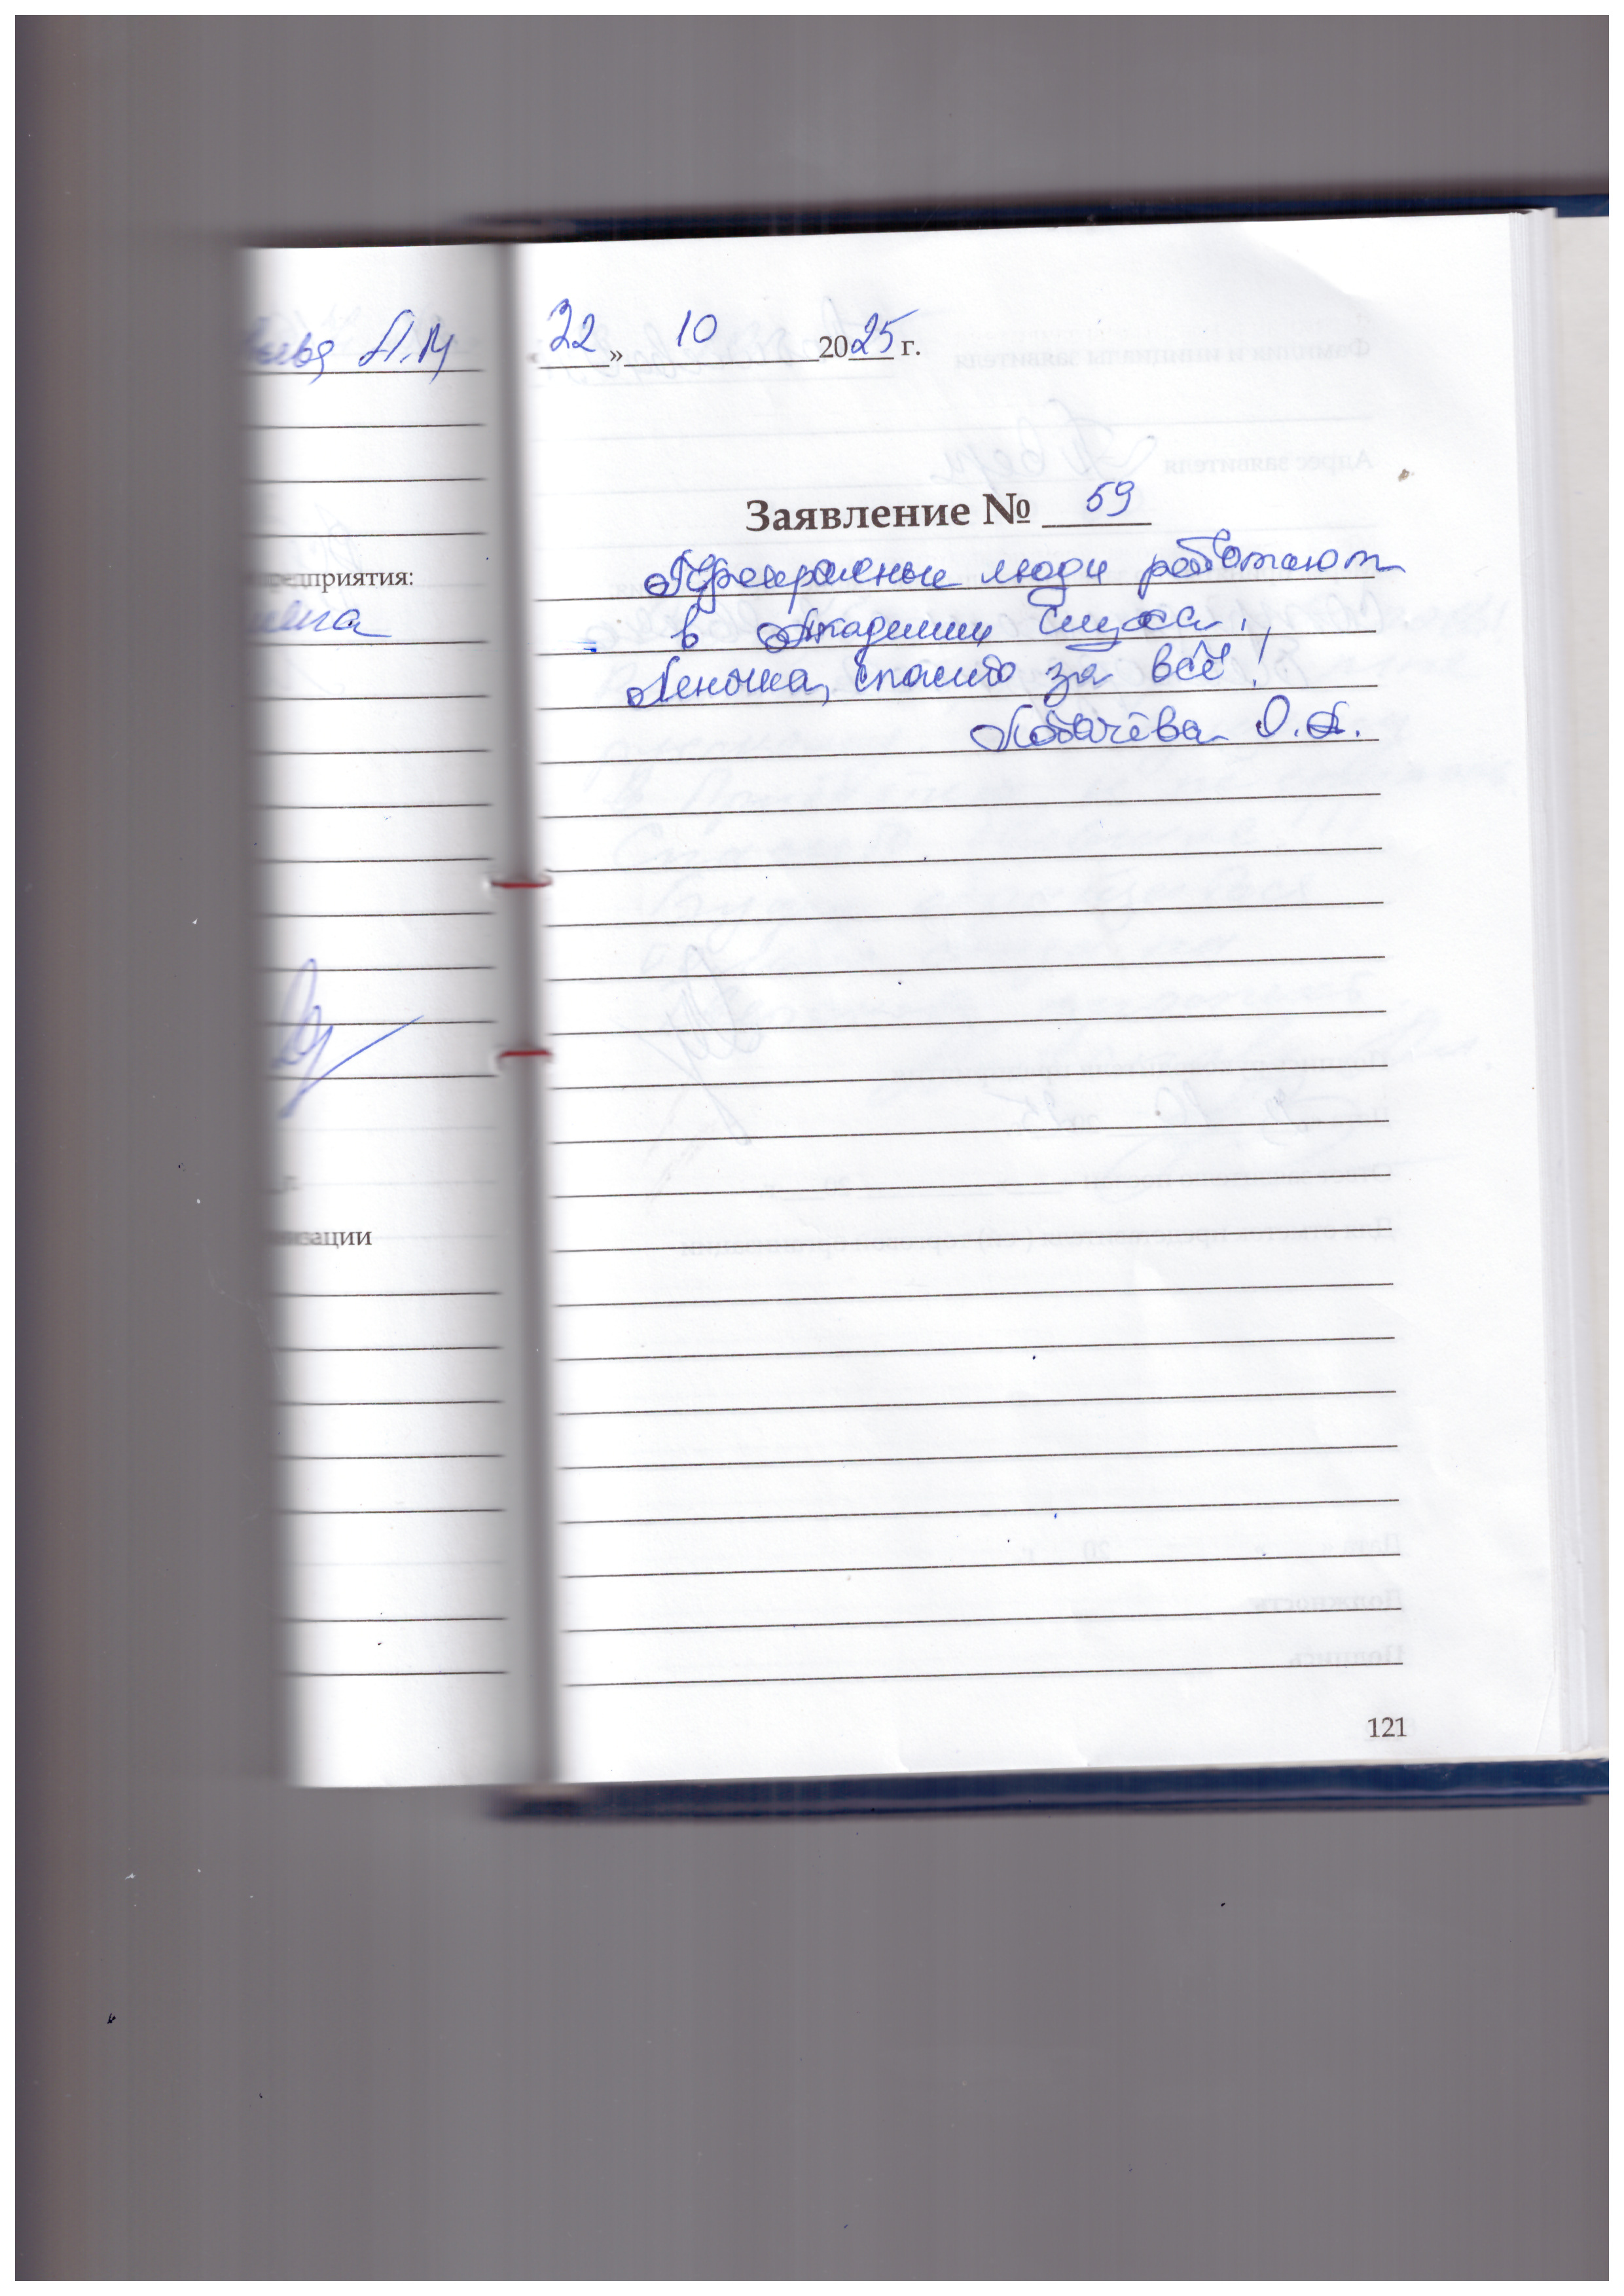 А.М
предприятия:
« 22 » 10 2025 г.
Заявление № 59
Прекрасные люди работают
в Академии Слуха!
Леночка, спасибо за всё!
Лобачёва О.А.
121